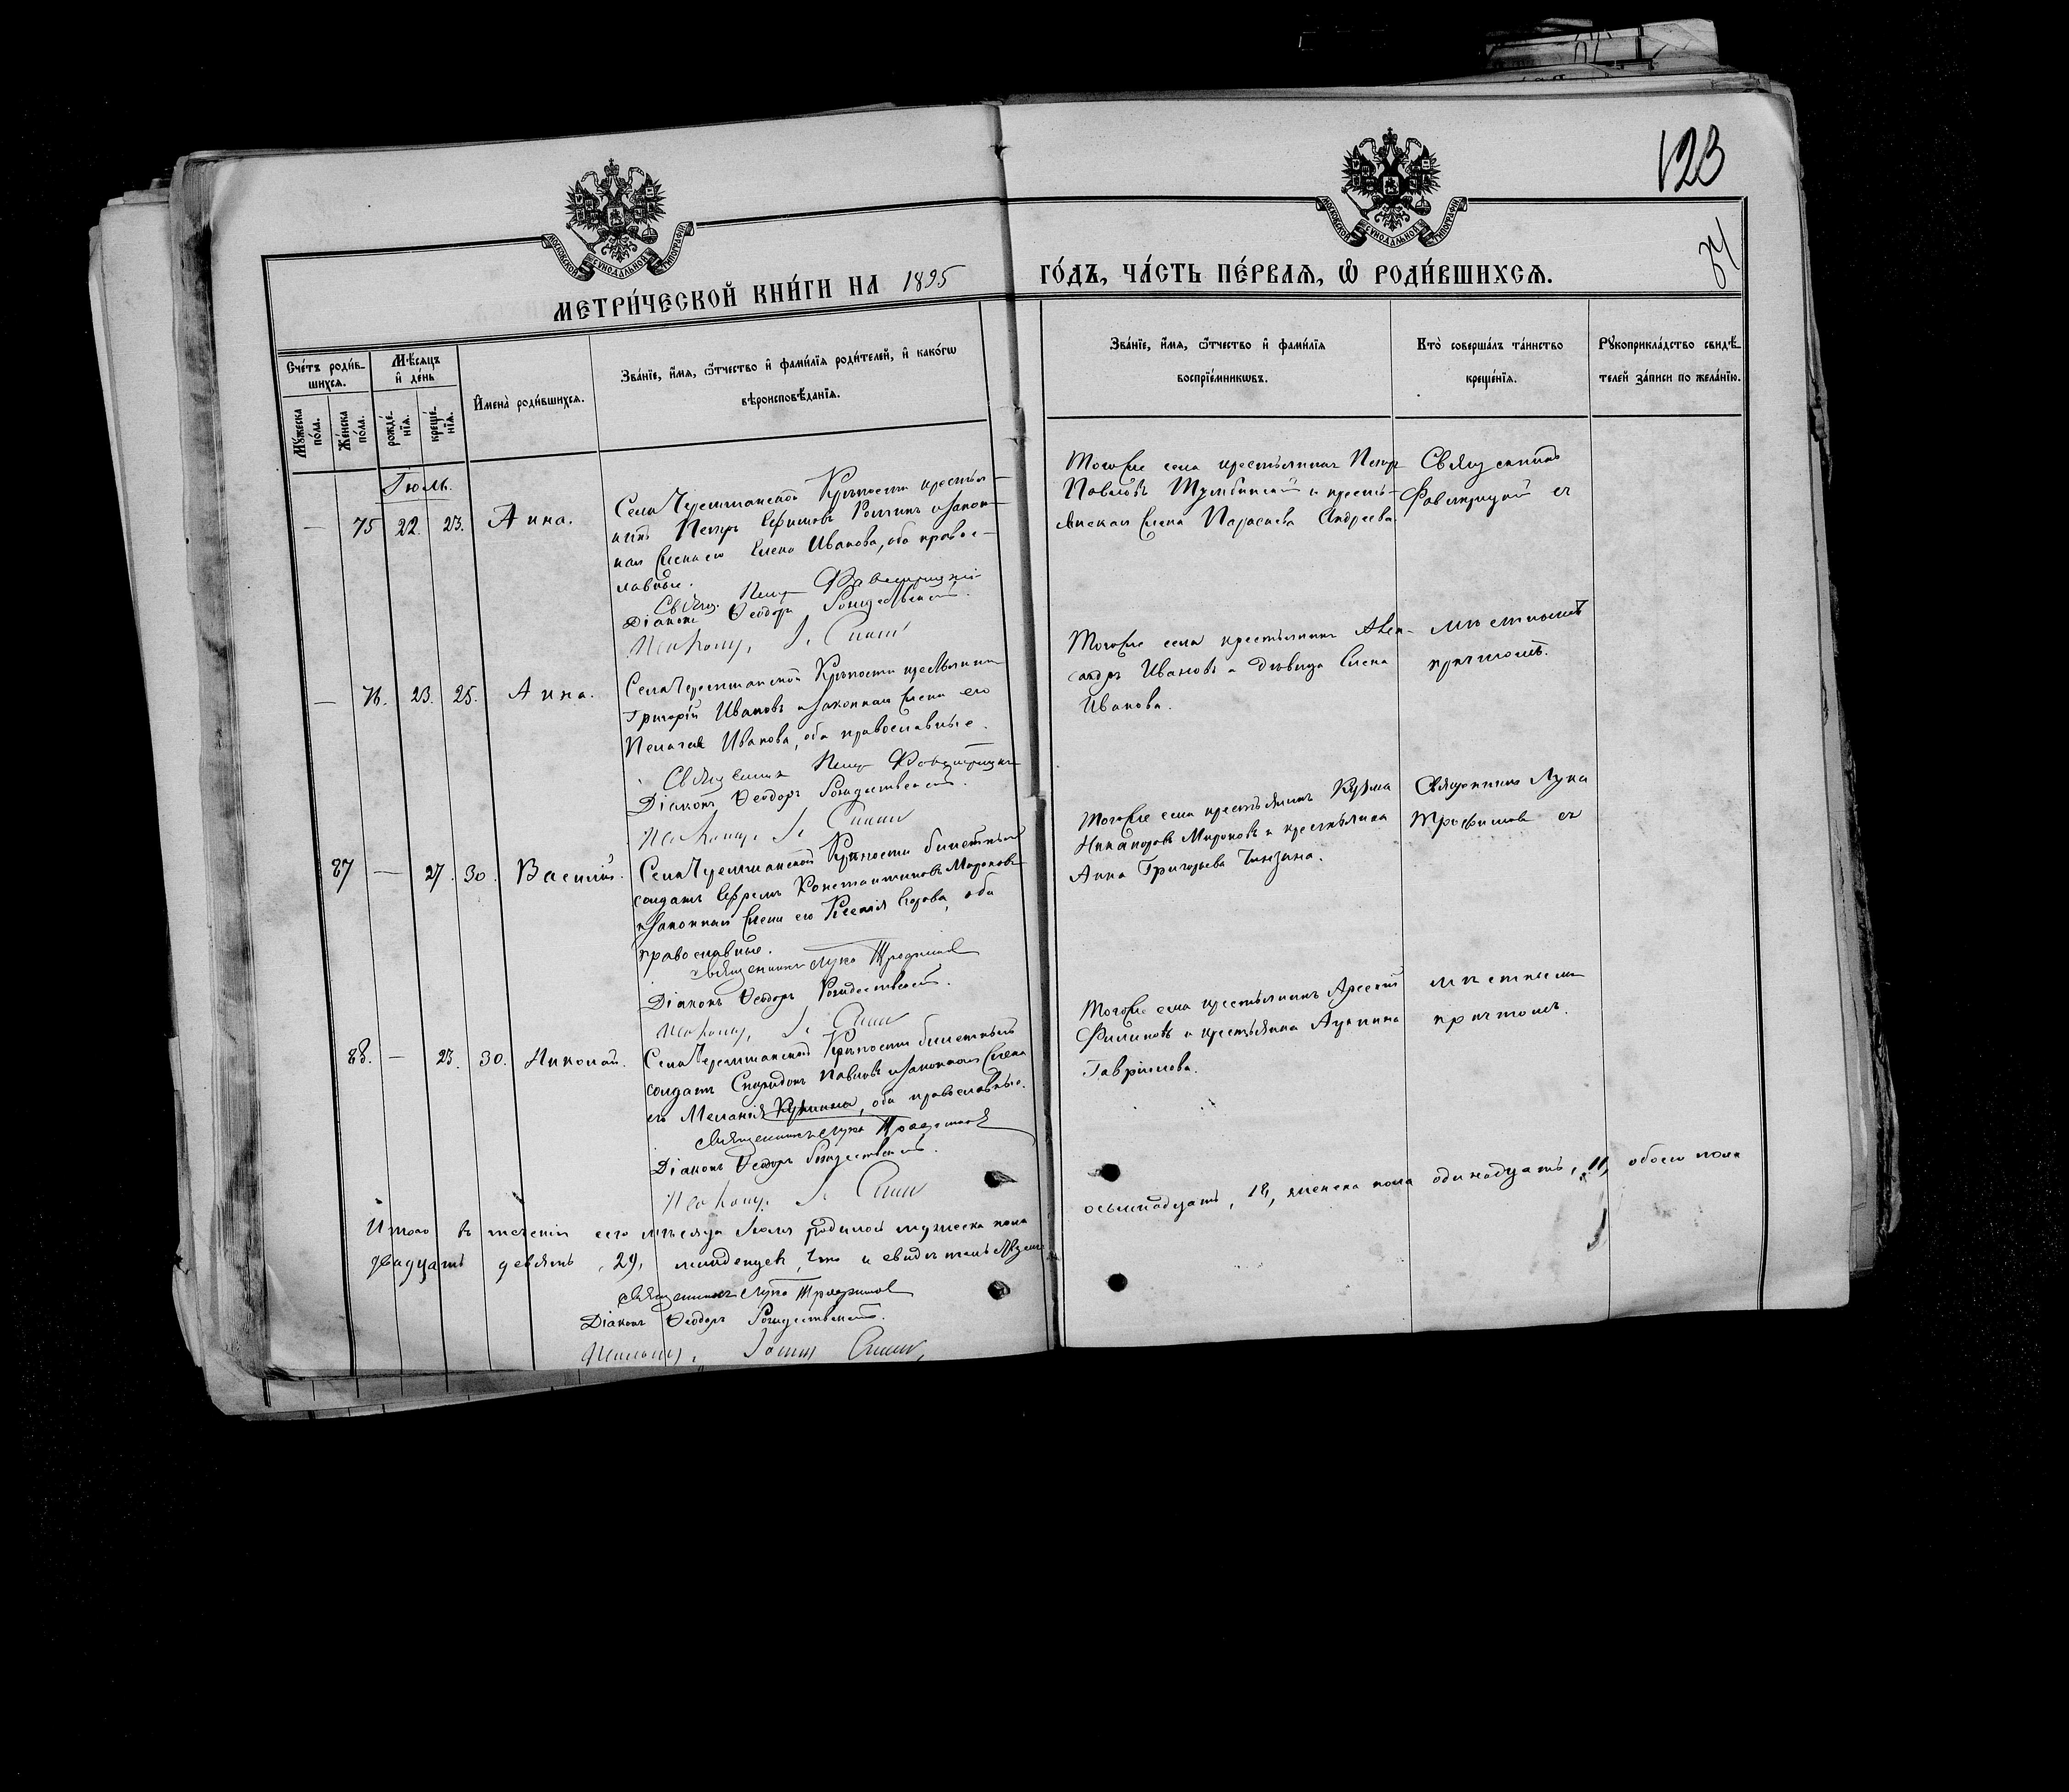 123
84
МОСКОВСКОЙ СѴНОДАЛЬНОЙ ТИПОГРАФІИ
МОСКОВСКОЙ СѴНОДАЛЬНОЙ ТИПОГРАФІИ
МЕТРИ́ЧЕСКОЙ КНИ́ГИ НА 1895 ГО́ДЪ, ЧА́СТЬ ПЕ́РВАѦ, Ѽ РОДИ́ВШИХСѦ.
Сче́тъ роди́в-
шихсѧ.
Мѣ́сѧцъ
и҆ де́нь
Мꙋ́жеска
по́ла.
Же́нска
по́ла.
рожде́-
нїѧ.
креще́-
нїѧ.
И҆мена̀ роди́вшихсѧ.
Зва́нїе, и҆́мѧ, ѻ҆́тчество и҆ фами́лїѧ роди́телей, и҆ како́гѡ
вѣроисповѣ́данїѧ.
Зва́нїе, и҆́мѧ, ѻ҆́тчество и҆ фами́лїѧ
воспрїе́мникѡвъ.
Кто̀ соверша́лъ та́инство
креще́нїѧ.
Рꙋкоприкла́дство свидѣ́-
телей за́писи по жела́нїю.
Іюль.
— 75 22. 23. Анна.
Села Черемшанской Крѣпости крестья-
нинъ Петръ Ефимовъ и закон-
ная жена его Елена Иванова, оба правос-
лавные.
Діаконъ Ѳеодоръ Рождественскій.
Тогоже села крестьянинъ Петръ
Павловъ и кресть-
янская жена Параскева Андреева.
Священникъ
съ
— 76. 23. 25. Анна.
Села Черемшанской Крѣпости крестьянинъ
Григорій Ивановъ и законная жена его
Пелагея Иванова, оба православные.
Священникъ Петръ
Діаконъ Ѳеодоръ Рождественскій.
Тогоже села крестьянинъ Алек-
сандръ Ивановъ и дѣвица Елена
Иванова.
мѣстнымъ
причтомъ.
87 — 27. 30. Василій.
Села Черемшанской Крѣпости билетный
солдатъ Ефремъ Константиновъ Мироновъ
и законная жена его Ксенія Егорова, оба
православные.
Священникъ Лука Трофимовъ
Діаконъ Ѳеодоръ Рождественскій.
Тогоже села крестьянинъ Кузма
Никаноровъ Мироновъ и крестьянка
Анна Григорьева
Священникъ Лука
Трофимовъ съ
88. — 23. 30. Николай.
Села Черемшанской Крѣпости билетный
солдатъ Спиридонъ Павловъ и законная жена
его Меланія, оба православные.
Священникъ Лука Трофимовъ
Діаконъ Ѳеодоръ Рождественскій.
Тогоже села крестьянинъ Арсеній
Филиповъ и крестьянка
Гаврилова.
мѣстнымъ
причтомъ.
Итого въ теченіи сего мѣсяца Іюля родилось мужеска пола осьмнадцать, 18, женска пола одинадцать, 11, обоего пола
двадцать девять, 29, младенцевъ, что и свидѣтельствуемъ
Священникъ Лука Трофимовъ
Діаконъ Ѳеодоръ Рождественскій.